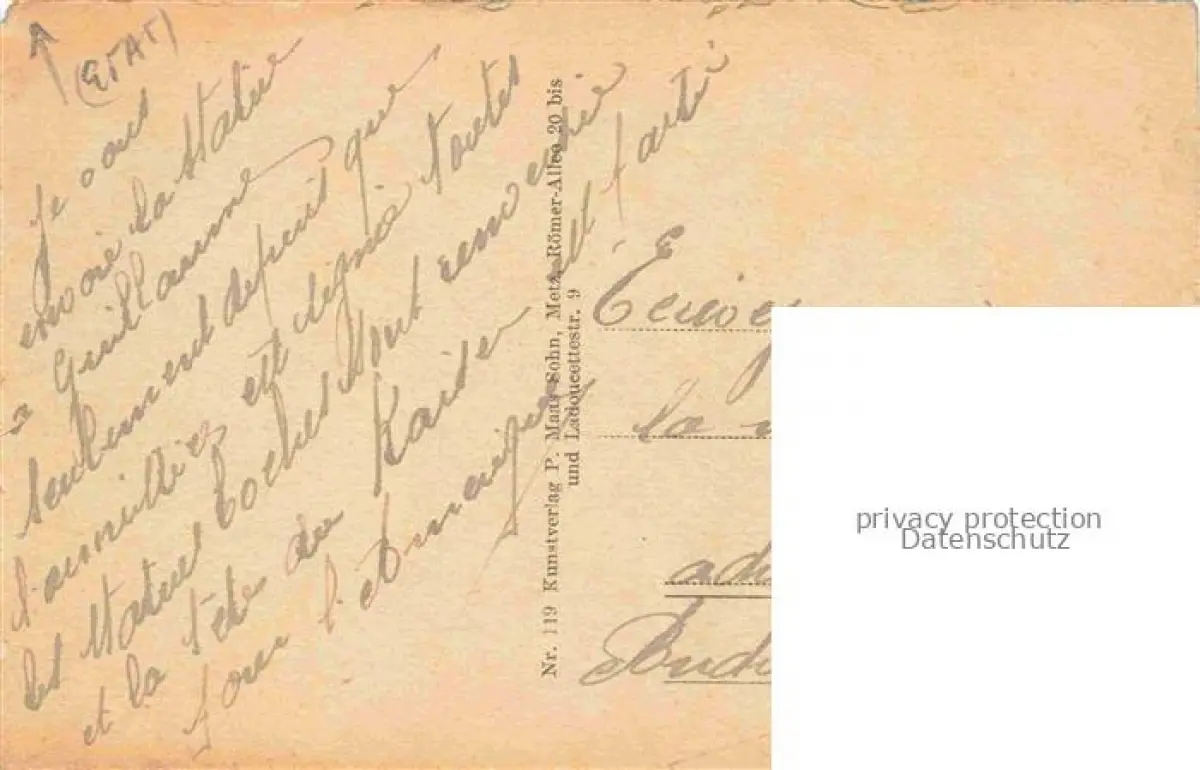 (ETAT)
Je vous
envoie la Statue
Guillaume
seulement depuis que
l'armistice est signé toutes
les Statues boches sont renversée
et la tête du Kaiser est parti
pour l'Amerique
Nr. 119 Kunstverlag P. Maas Sohn, Metz, Römer-Allee 20 bis
und Ladoucettestr. 9
la
privacy protection
Datenschutz